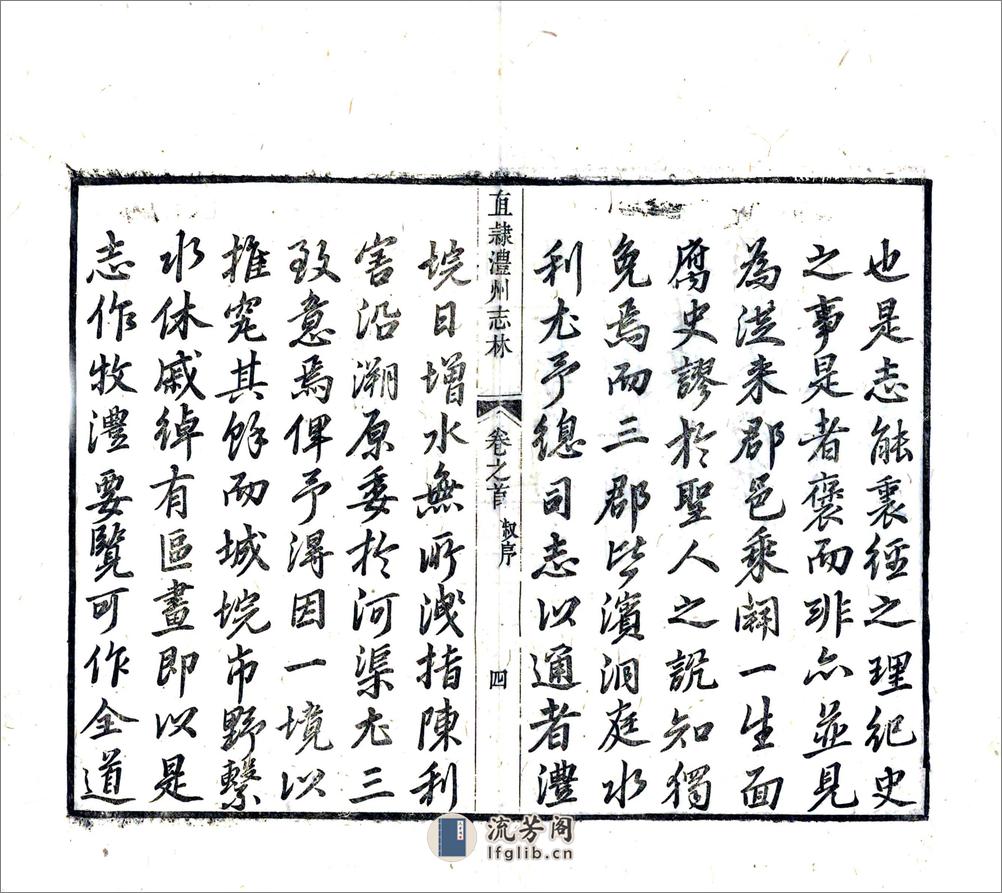 也是志能裏經之理紀史
之事是者褒而非亦並見
為従来郡邑乘闢一生面
腐史謬於聖人之説知獨
免焉而三郡皆濱洞庭水
利尤予總司志以通者澧
直隷澧州志林 卷之首 敘序 四
垸日增水無所洩指陳利
害沿溯原委於河渠尤三
致意焉俾予得因一境以
推究其餘而城垸市野繫
水休戚綽有區畫即以是
志作牧澧要覽可作全道
流芳阁
lfglib.cn